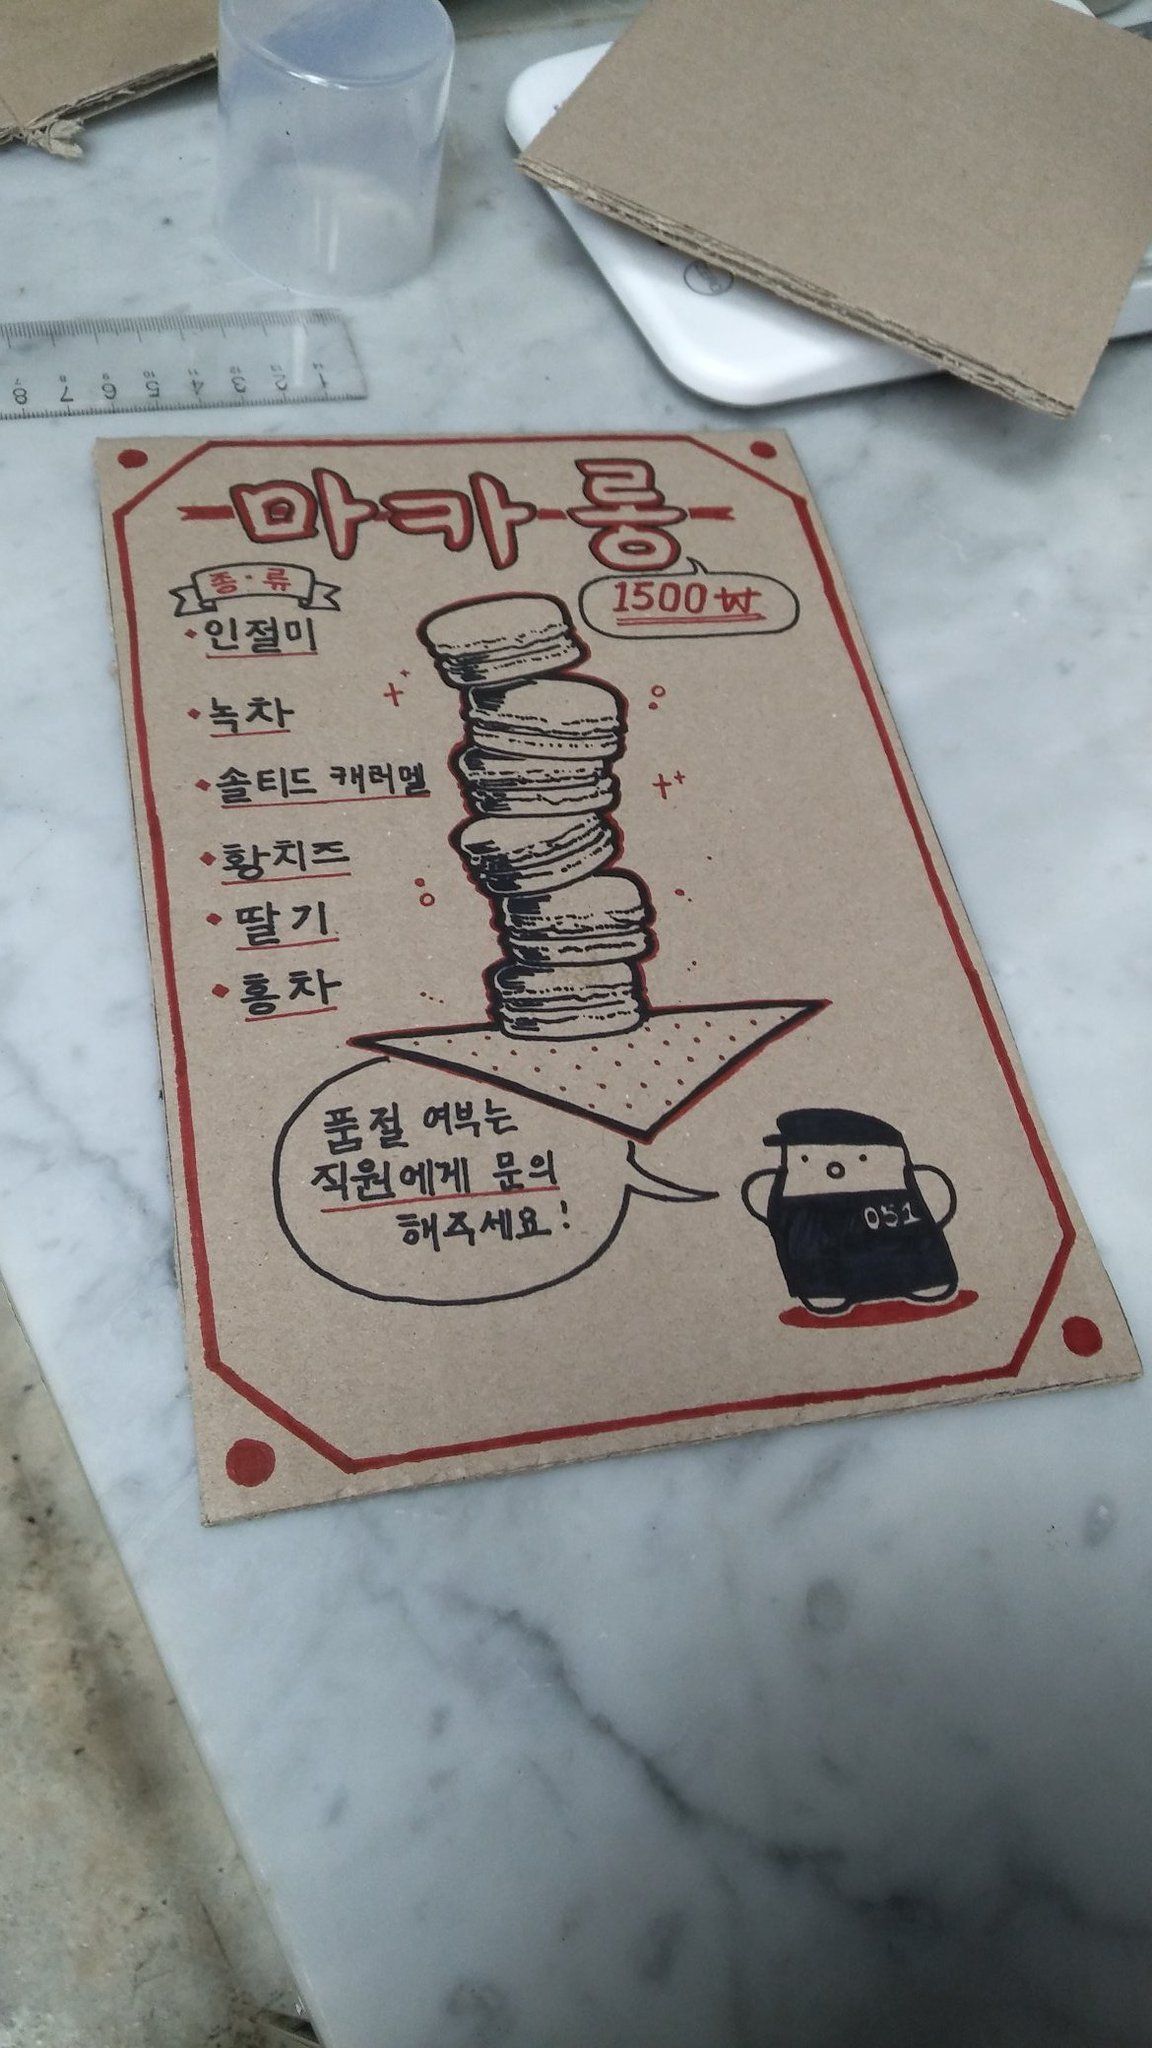 마카롱
1500₩
종·류
인절미
녹차
솔티드 캐러멜
황치즈
딸기
홍차
품절 여부는
직원에게 문의
해주세요!
051
8 7 6 5 4 3 2 1